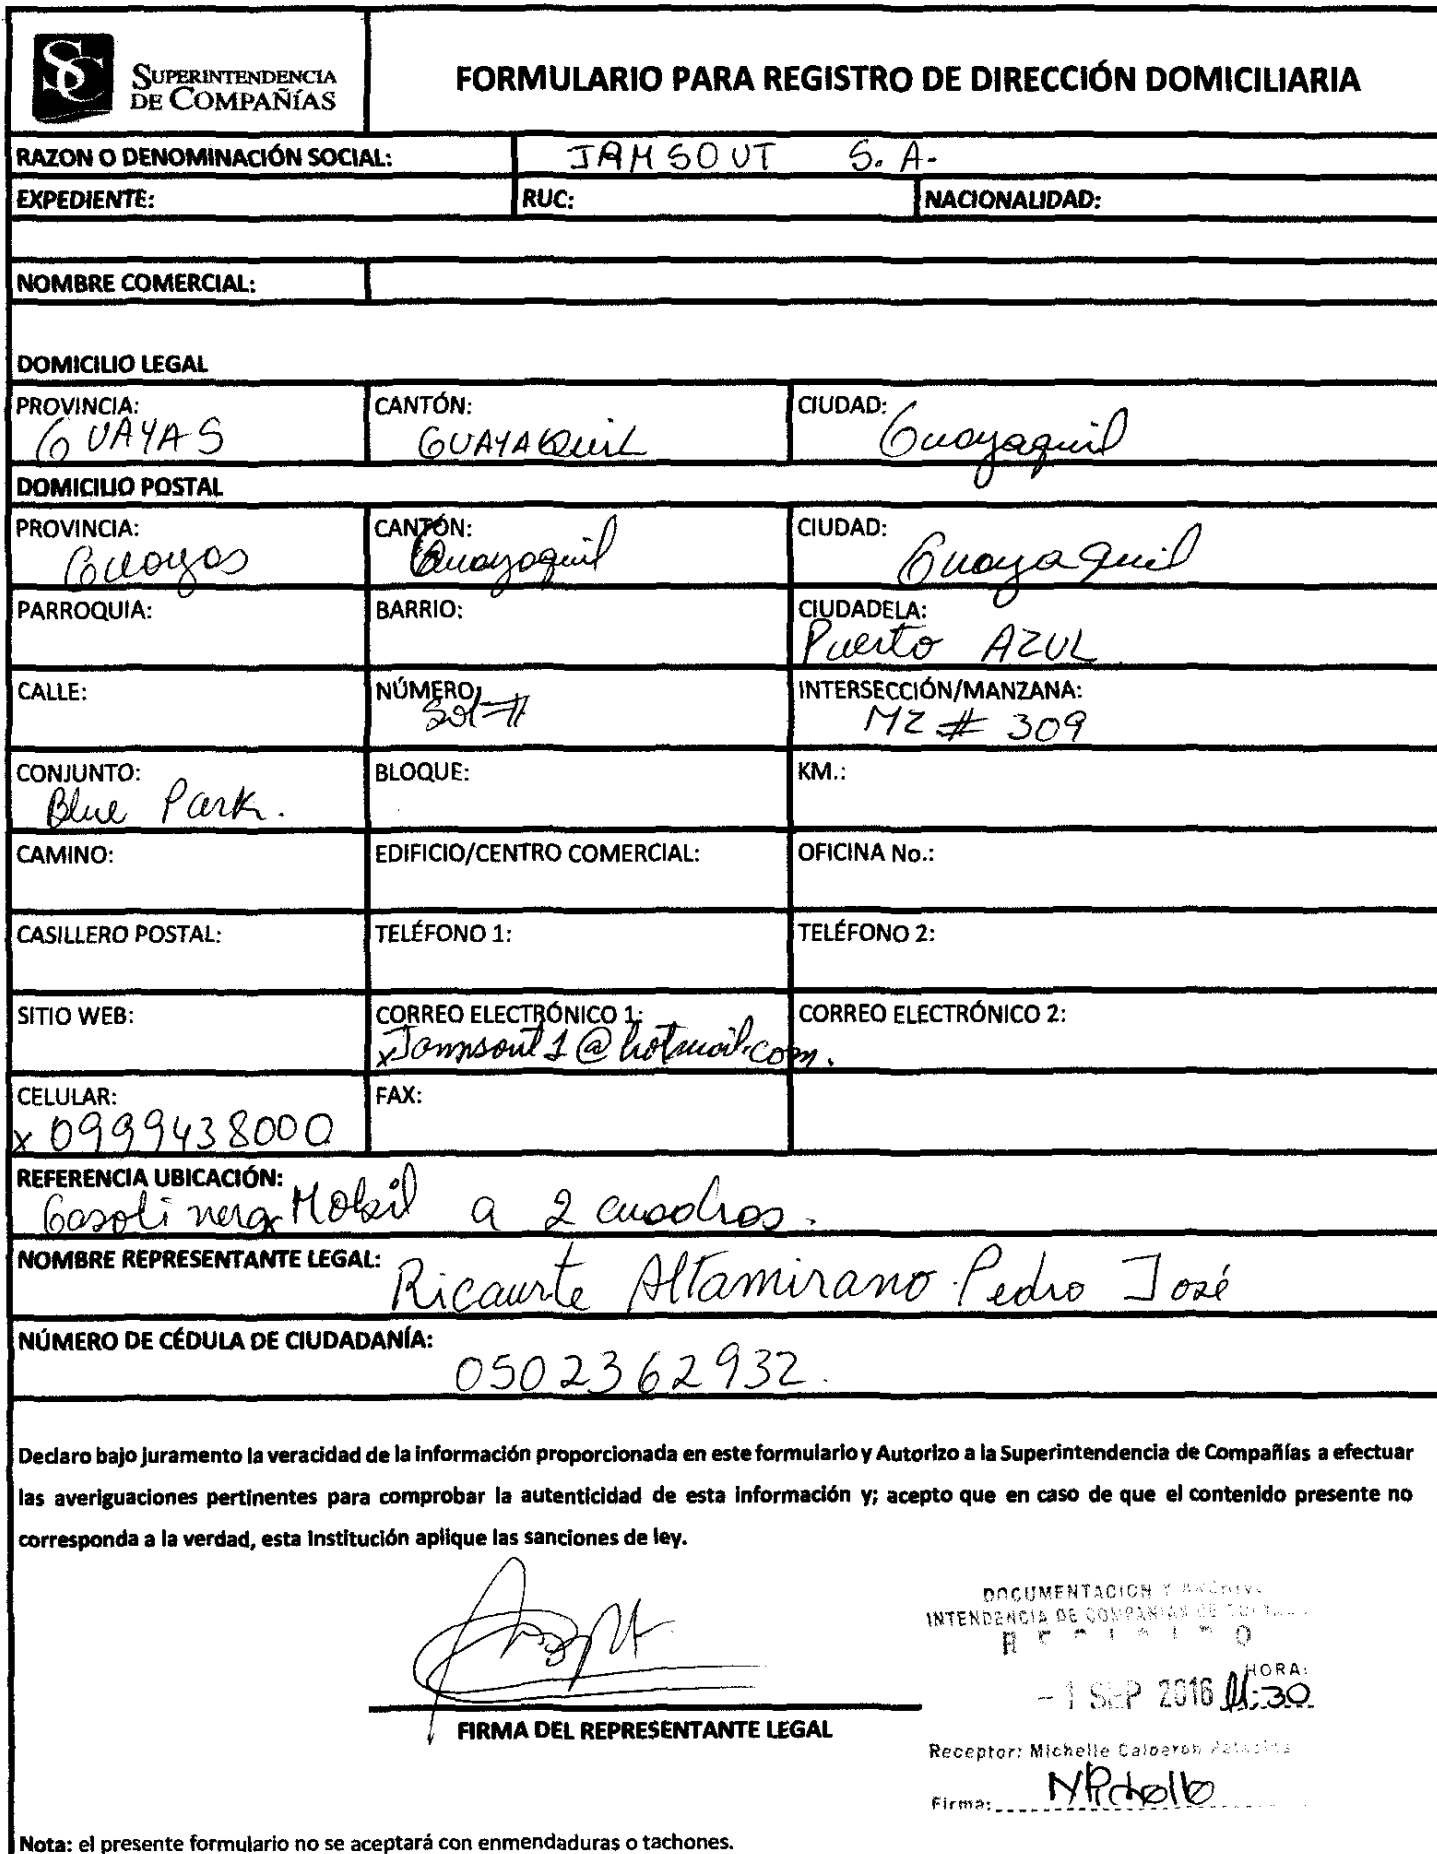 SUPERINTENDENCIA
DE COMPAÑÍAS
FORMULARIO PARA REGISTRO DE DIRECCIÓN DOMICILIARIA
RAZON O DENOMINACIÓN SOCIAL: JAMSOUT S.A.
EXPEDIENTE: RUC: NACIONALIDAD:
NOMBRE COMERCIAL:
DOMICILIO LEGAL
PROVINCIA: CANTÓN: CIUDAD:
GUAYAS GUAYAQUIL Guayaquil
DOMICILIO POSTAL
PROVINCIA: CANTÓN: CIUDAD:
Guayas Guayaquil Guayaquil
PARROQUIA: BARRIO: CIUDADELA:
Puerto AZUL
CALLE: NÚMERO: INTERSECCIÓN/MANZANA:
Sol # MZ # 309
CONJUNTO: BLOQUE: KM.:
Blue Park.
CAMINO: EDIFICIO/CENTRO COMERCIAL: OFICINA No.:
CASILLERO POSTAL: TELÉFONO 1: TELÉFONO 2:
SITIO WEB: CORREO ELECTRÓNICO 1: CORREO ELECTRÓNICO 2:
x Jamsout1@hotmail.com.
CELULAR: FAX:
x 0999438000
REFERENCIA UBICACIÓN:
Gasolinera Mobil a 2 cuadras.
NOMBRE REPRESENTANTE LEGAL: Ricaurte Altamirano Pedro José
NÚMERO DE CÉDULA DE CIUDADANÍA:
0502362932.
Declaro bajo juramento la veracidad de la información proporcionada en este formulario y Autorizo a la Superintendencia de Compañías a efectuar
las averiguaciones pertinentes para comprobar la autenticidad de esta información y; acepto que en caso de que el contenido presente no
corresponda a la verdad, esta Institución aplique las sanciones de ley.
DOCUMENTACION Y ARCHIVO
INTENDENCIA DE COMPAÑIAS DE
RECIBIDO
HORA:
- 1 SEP 2016 11:30
FIRMA DEL REPRESENTANTE LEGAL
Receptor: Michelle Calderon
Firma:
Nota: el presente formulario no se aceptará con enmendaduras o tachones.